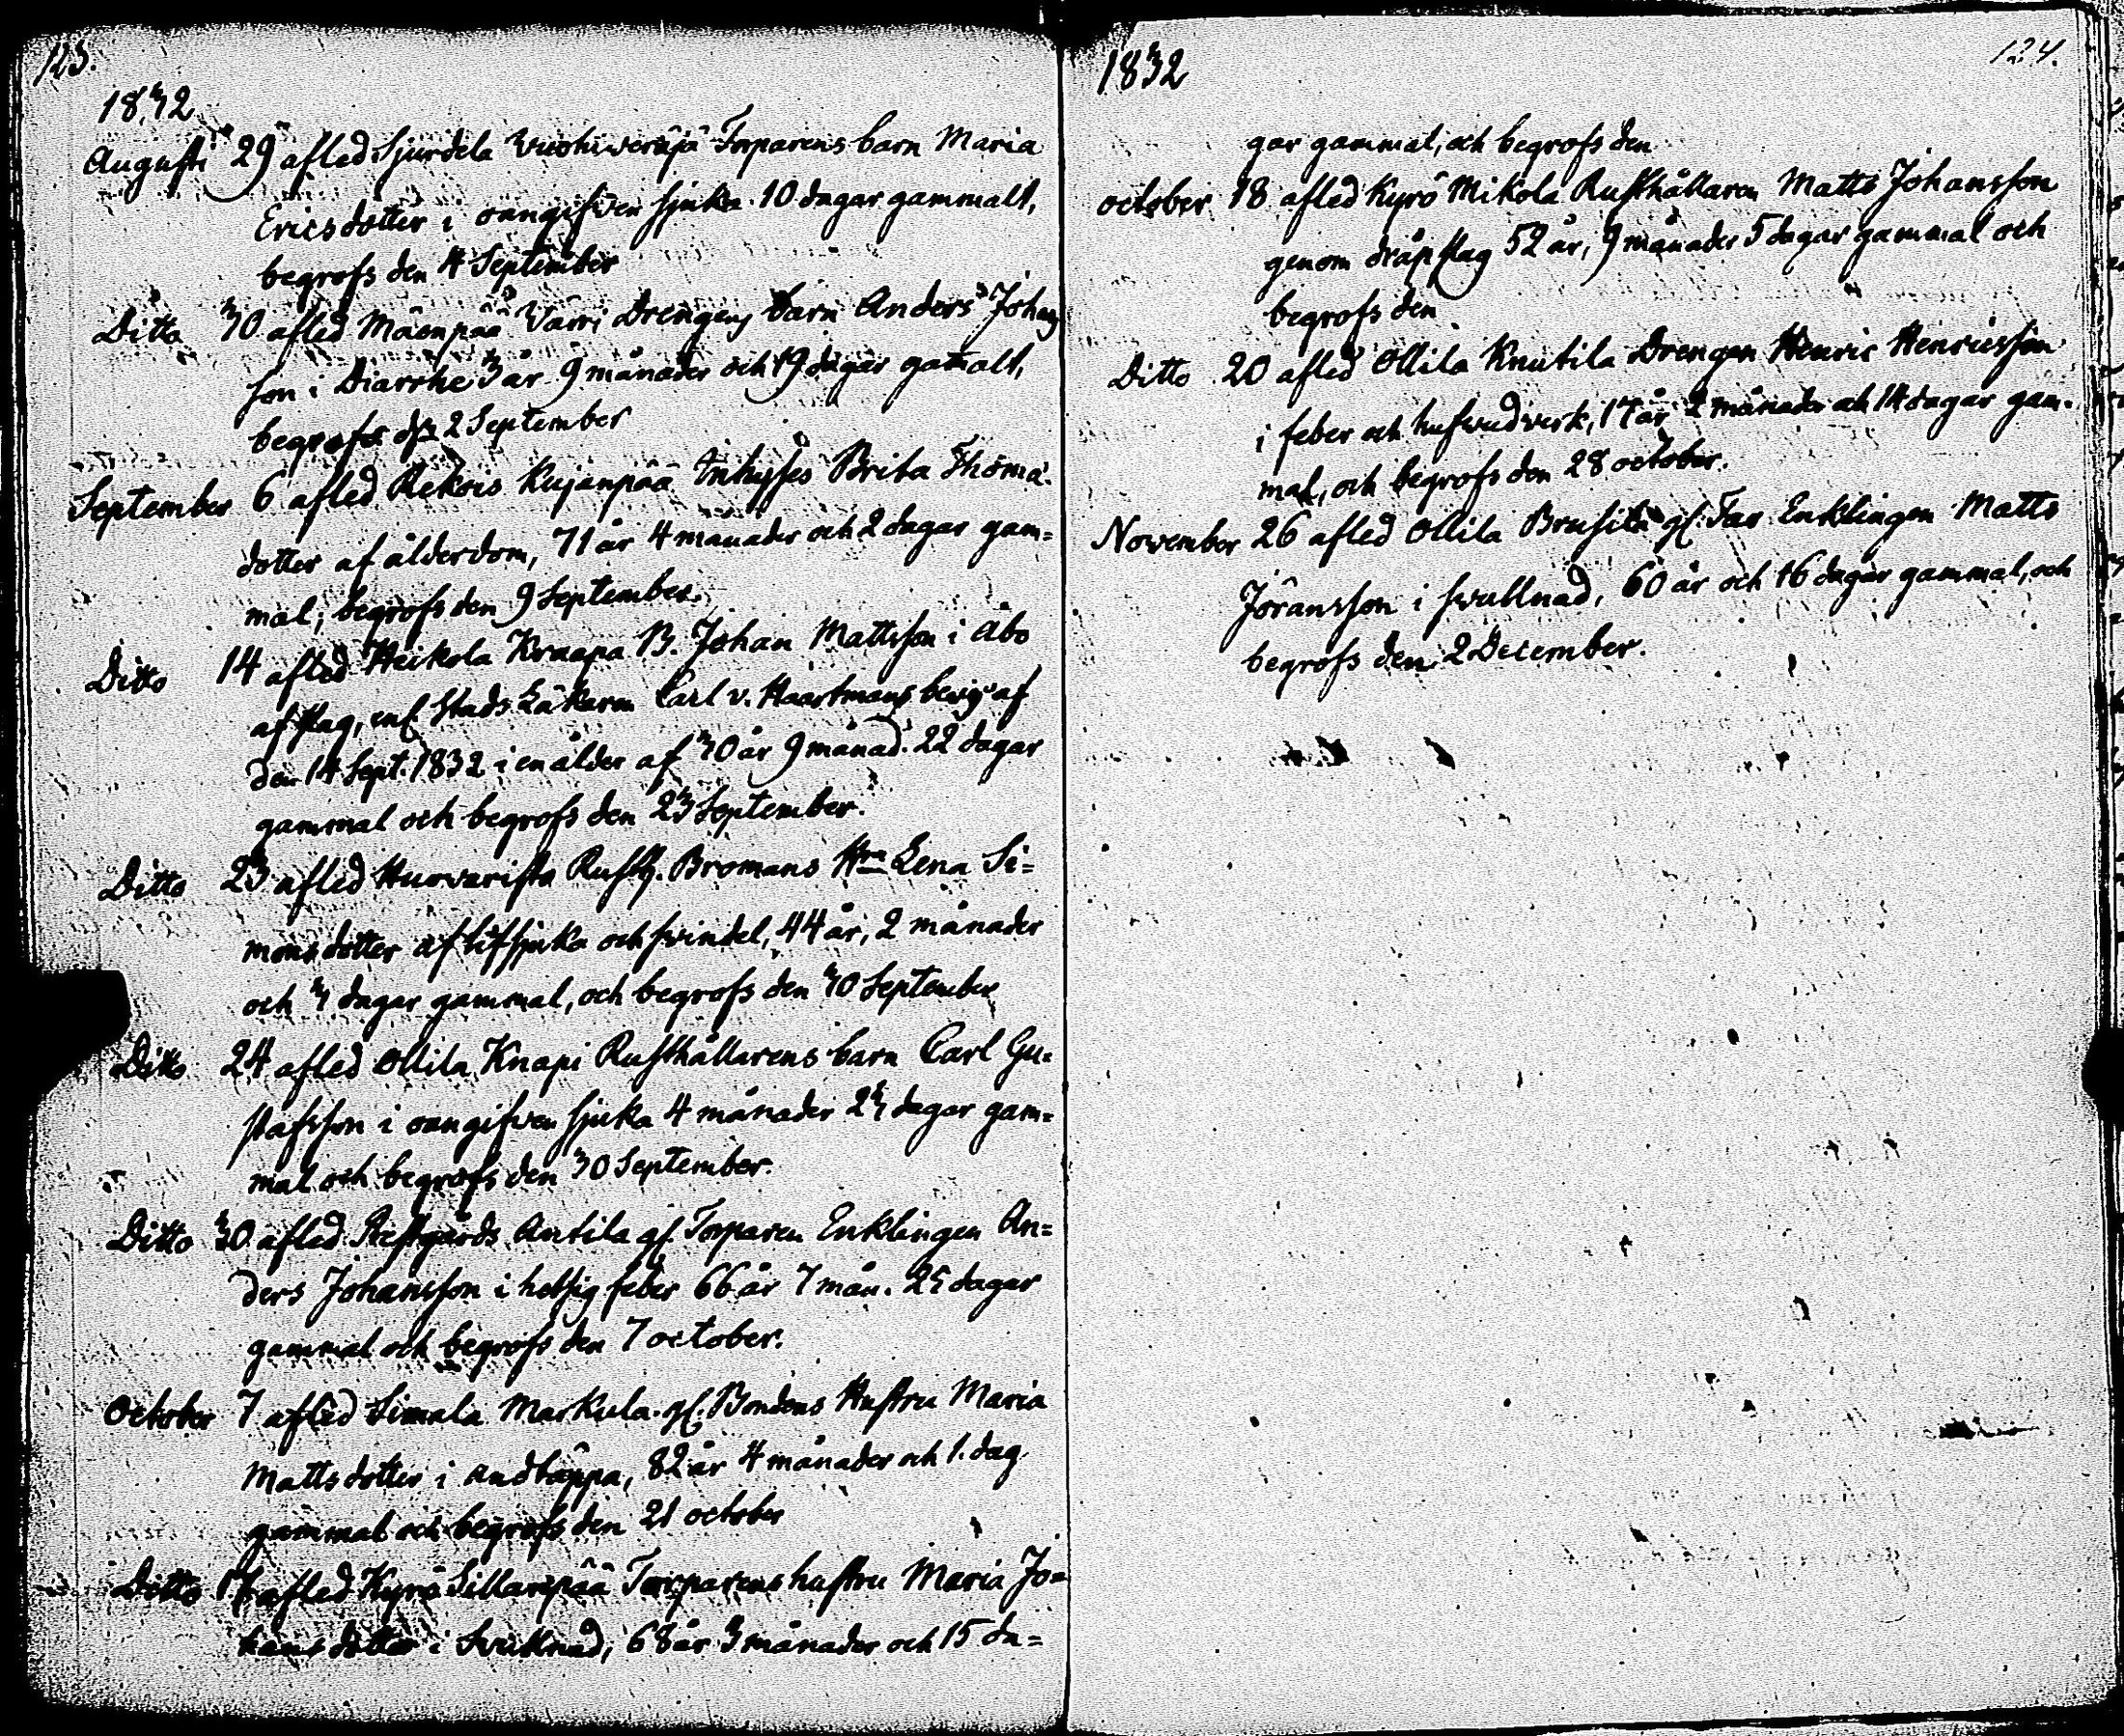 123.
1832
Augusti 29 afled Sjurdela Vuohiveräjä Torparens barn Maria
Ericsdotter i oangifven sjuka 10 dagar gammalt,
begrofs den 4 September
Ditto 30 afled Mäenpää Värri Drengens barn Anders Johans
son i Diarrhe 3 år 9 månader och 19 dagar gamalt,
begrofs den 2 September
September 6 afled Rekois Kujanpää Inhyses Brita Thoma-
dotter af ålderdom, 71 år 4 månader och 2 dagar gam=
mal, begrofs den 9 September.
Ditto 14 afled Heikola Kraapa B. Johan Mattsson i Åbo
af slag, enl. Stads Läkaren Carl v. Haartmans bevis af
den 14 Sept. 1832 i en ålder af 30 år 9 månad. 22 dagar
gammal och begrofs den 23 September.
Ditto 23 afled Hurvarista Rusth. Bromans Hru Lena Si=
monsdotter af lifsjuka och svindel, 44 år, 2 månader
och 3 dagar gammal, och begrofs den 30 September
Ditto 24 afled Ollila Knapi Rusthållarens barn Carl Gu=
stafsson i oangifven sjuka 4 månader 23 dagar gam=
mal och begrofs den 30 September.
Ditto 30 afled Prestgårds Antila gl. Torparen Enklingen An=
ders Johansson i hetsig feber 66 år 7 mån. 25 dagar
gammal och begrofs den 7 october.
October 7 afled Simala Markula gl. Bondens Hustru Maria
Mattsdotter i andtäppa, 82 år 4 månader och 1. dag
gammal och begrofs den 21 october
Ditto 17 afled Kyrö Sillanpää Torparens hustru Maria Jo=
hansdotter i Svullnad, 68 år 3 månader och 15 da=
1832
124.
gar gammal, och begrofs den
october 18 afled Kyrö Mikola Rusthållaren Matts Johansson
genom dråpslag 52 år, 9 månader 5 dagar gammal och
begrofs den
Ditto 20 afled Ollila Knutila Drengen Henric Henricsson
i feber och hufvudverk, 17 år 2 månader och 14 dagar gam-
mal, och begrofs den 28 october.
November 26 afled Ollila Brusila gl. Far Enklingen Matts
Jöransson i svullnad, 60 år och 16 dagar gammal, och
begrofs den 2 December.